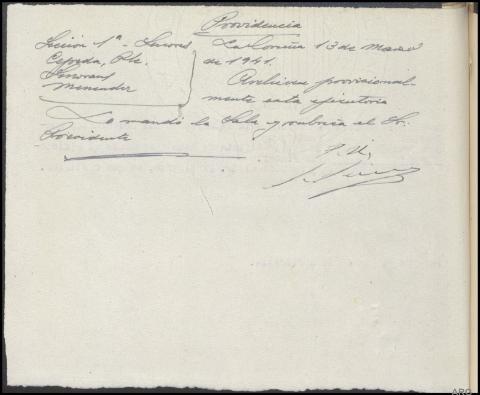 Providencia
Sección 1ª - Señores
Cepeda, Pte.
Menendez
La Coruña 13 de Marzo
de 1941.
Archívese provisional-
mente esta ejecutoria
Lo mandó la Sala y rubrica el Sr.
Presidente
ARG